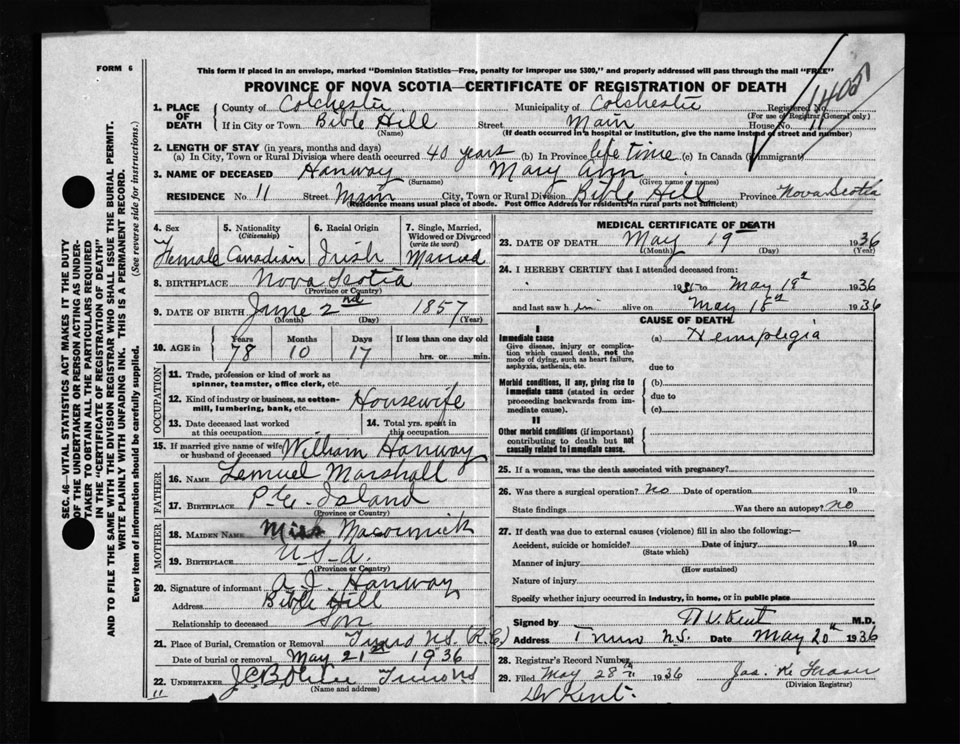 FORM 6
This form if placed in an envelope, marked "Dominion Statistics—Free, penalty for improper use $300," and properly addressed will pass through the mail "FREE"
PROVINCE OF NOVA SCOTIA—CERTIFICATE OF REGISTRATION OF DEATH
1. PLACE OF DEATH County of Colchester Municipality of Colchester Registered No.
(For use of Registrar General only)
If in City or Town Bible Hill Street Main House No. 11
(Name) (If death occurred in a hospital or institution, give the name instead of street and number)
2. LENGTH OF STAY (in years, months and days)
(a) In City, Town or Rural Division where death occurred 40 years (b) In Province life time (c) In Canada (if immigrant)
3. NAME OF DECEASED Hanway Mary Ann
(Surname) (Given name or names)
RESIDENCE No. 11 Street Main City, Town or Rural Division Bible Hill Province Nova Scotia
(Residence means usual place of abode. Post Office Address for residents in rural parts not sufficient)
4. Sex Female
5. Nationality (Citizenship) Canadian
6. Racial Origin Irish
7. Single, Married, Widowed or Divorced (write the word) Married
8. BIRTHPLACE Nova Scotia
(Province or Country)
9. DATE OF BIRTH June 2nd 1857
(Month) (Day) (Year)
10. AGE in Years Months Days If less than one day old
78 10 17 hrs. or min.
OCCUPATION
11. Trade, profession or kind of work as spinner, teamster, office clerk, etc.
12. Kind of industry or business, as cotton-mill, lumbering, bank, etc. Housewife
13. Date deceased last worked at this occupation
14. Total yrs. spent in this occupation
15. If married give name of wife or husband of deceased William Hanway
FATHER
16. NAME Lemuel Marshall
17. BIRTHPLACE P. E. Island
(Province or Country)
MOTHER
18. MAIDEN NAME Macormick
19. BIRTHPLACE U.S.A.
(Province or Country)
20. Signature of informant A. J. Hanway
Address Bible Hill
Relationship to deceased Son
21. Place of Burial, Cremation or Removal Truro N.S. (R.C.)
Date of burial or removal May 21st 1936
22. UNDERTAKER Truro NS
(Name and address)
MEDICAL CERTIFICATE OF DEATH
23. DATE OF DEATH May 19 1936
(Month) (Day) (Year)
24. I HEREBY CERTIFY that I attended deceased from:
to May 19th 1936
and last saw h alive on May 18th 1936
CAUSE OF DEATH
I
Immediate cause (a) Hemiplegia
Give disease, injury or complication which caused death, not the mode of dying, such as heart failure, asphyxia, asthenia, etc.
due to
Morbid conditions, if any, giving rise to immediate cause (stated in order proceeding backwards from immediate cause)
(b)
due to
(c)
II
Other morbid conditions (if important) contributing to death but not causally related to immediate cause.
25. If a woman, was the death associated with pregnancy?
26. Was there a surgical operation? no Date of operation 19
State findings Was there an autopsy? no
27. If death was due to external causes (violence) fill in also the following:—
Accident, suicide or homicide? Date of injury 19
(State which)
Manner of injury
(How sustained)
Nature of injury
Specify whether injury occurred in industry, in home, or in public place
Signed by Kent M.D.
Address Truro N.S. Date May 20th 1936
28. Registrar's Record Number
29. Filed May 28th 1936 Jas. K. Fraser
(Division Registrar)
Dr Kent.
SEC. 46—VITAL STATISTICS ACT MAKES IT THE DUTY OF THE UNDERTAKER OR PERSON ACTING AS UNDERTAKER TO OBTAIN ALL THE PARTICULARS REQUIRED IN THE "CERTIFICATE OF REGISTRATION OF DEATH" AND TO FILE THE SAME WITH THE DIVISION REGISTRAR WHO SHALL ISSUE THE BURIAL PERMIT.
WRITE PLAINLY WITH UNFADING INK. THIS IS A PERMANENT RECORD.
Every item of information should be carefully supplied. (See reverse side for instructions.)